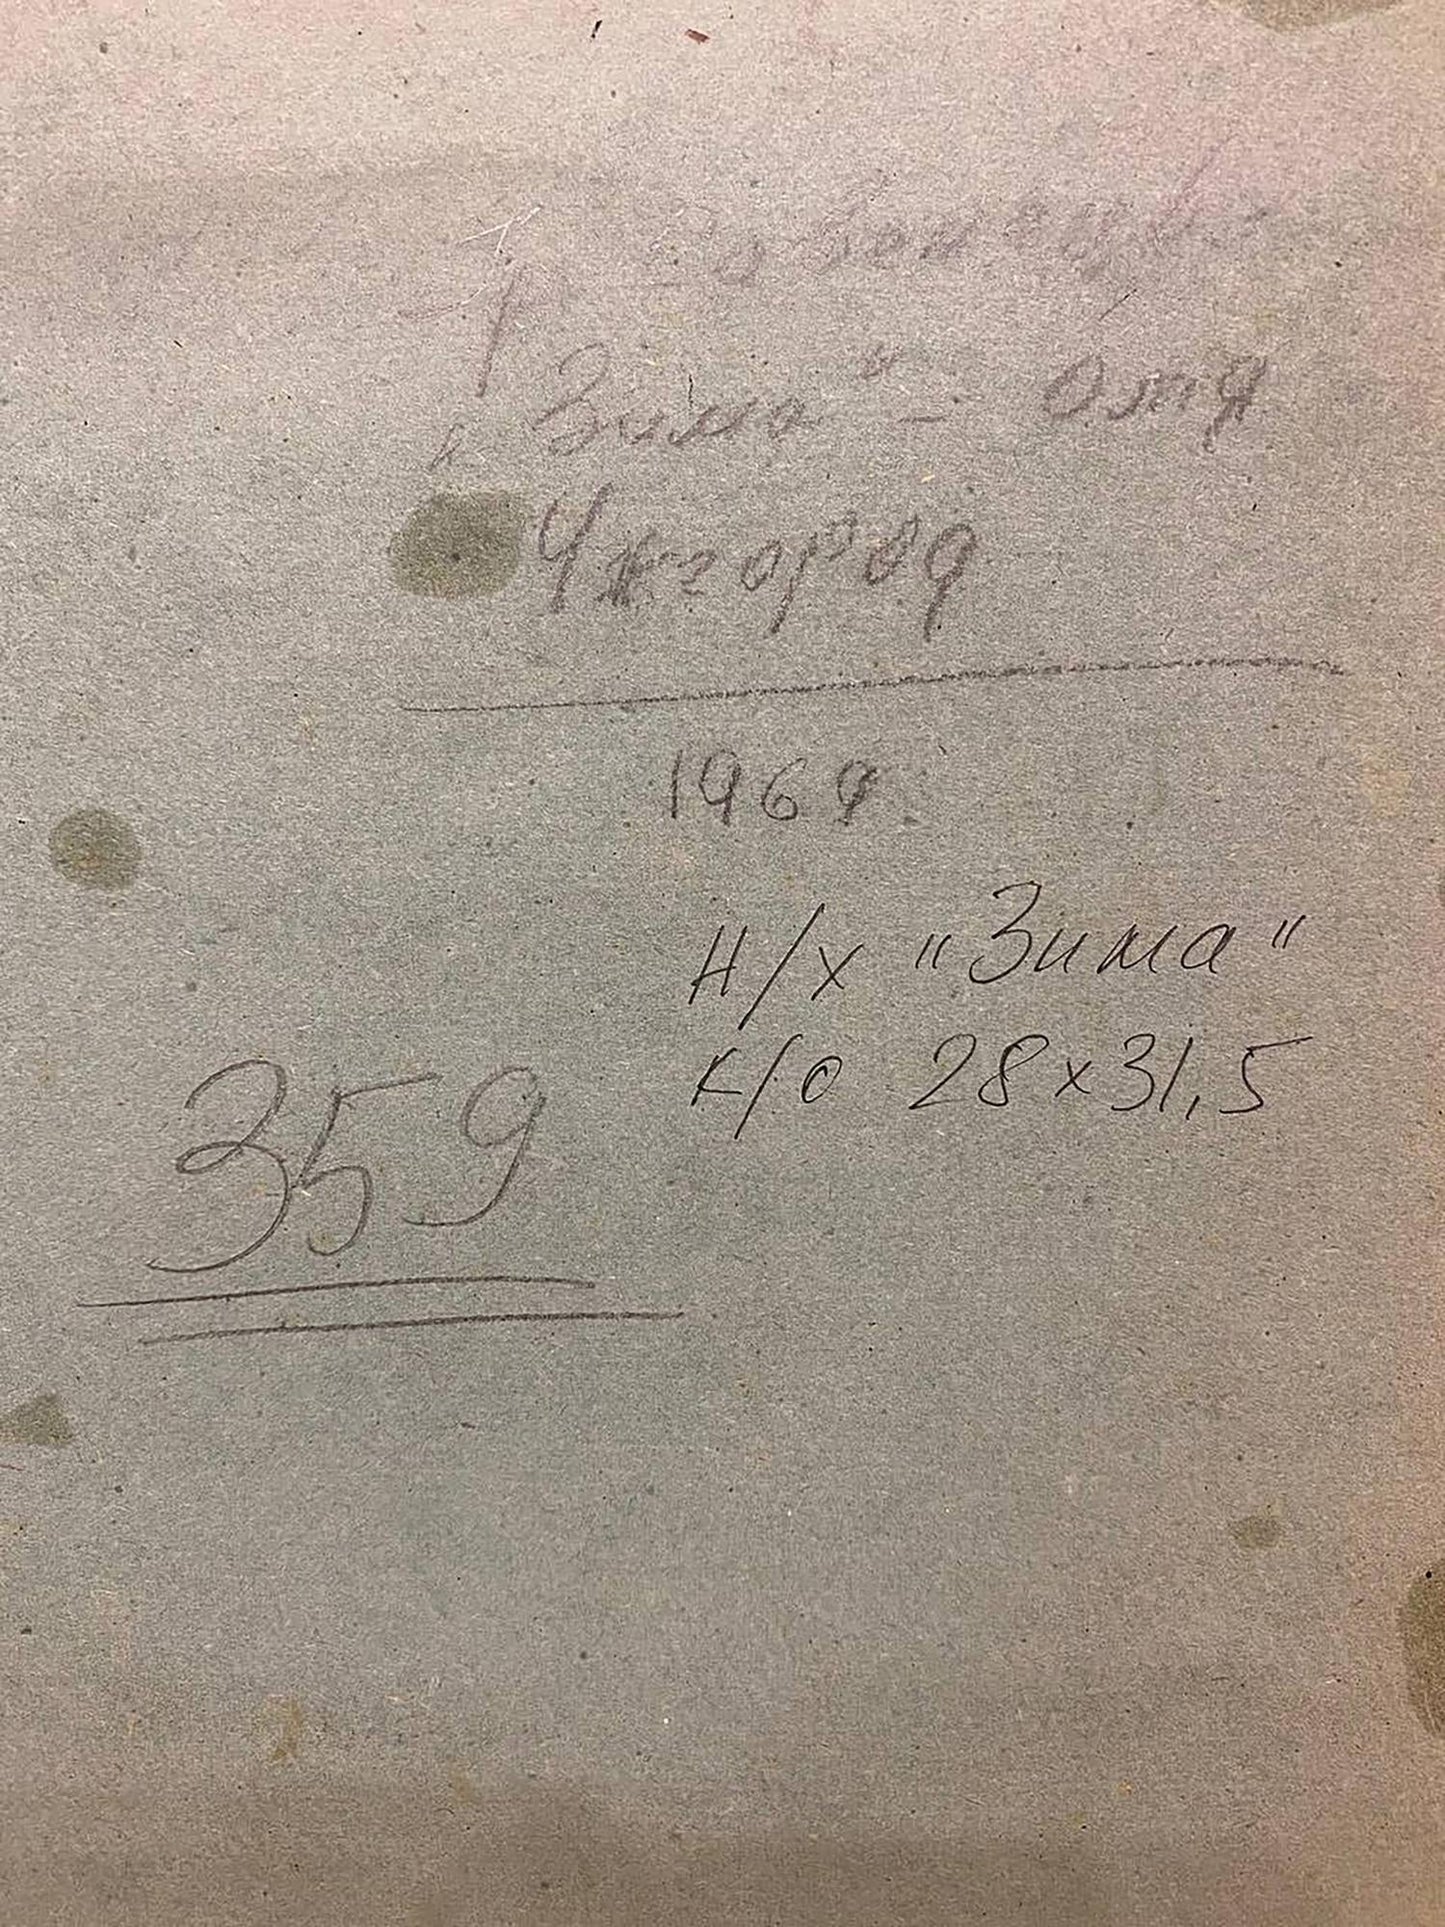 „Зима" - олія
Ужгород
1969.
Н/Х "Зима"
К/О 28х31,5
359